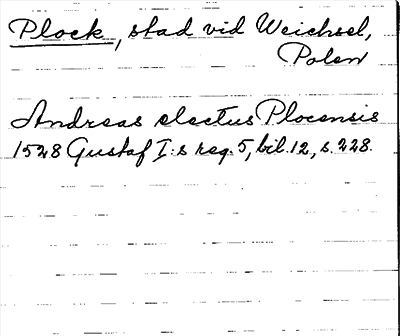 Plock, stad vid Weichsel,
Polen
Andreas electus Plocensis
1528 Gustaf I:s reg. 5, bil. 12, s. 228.